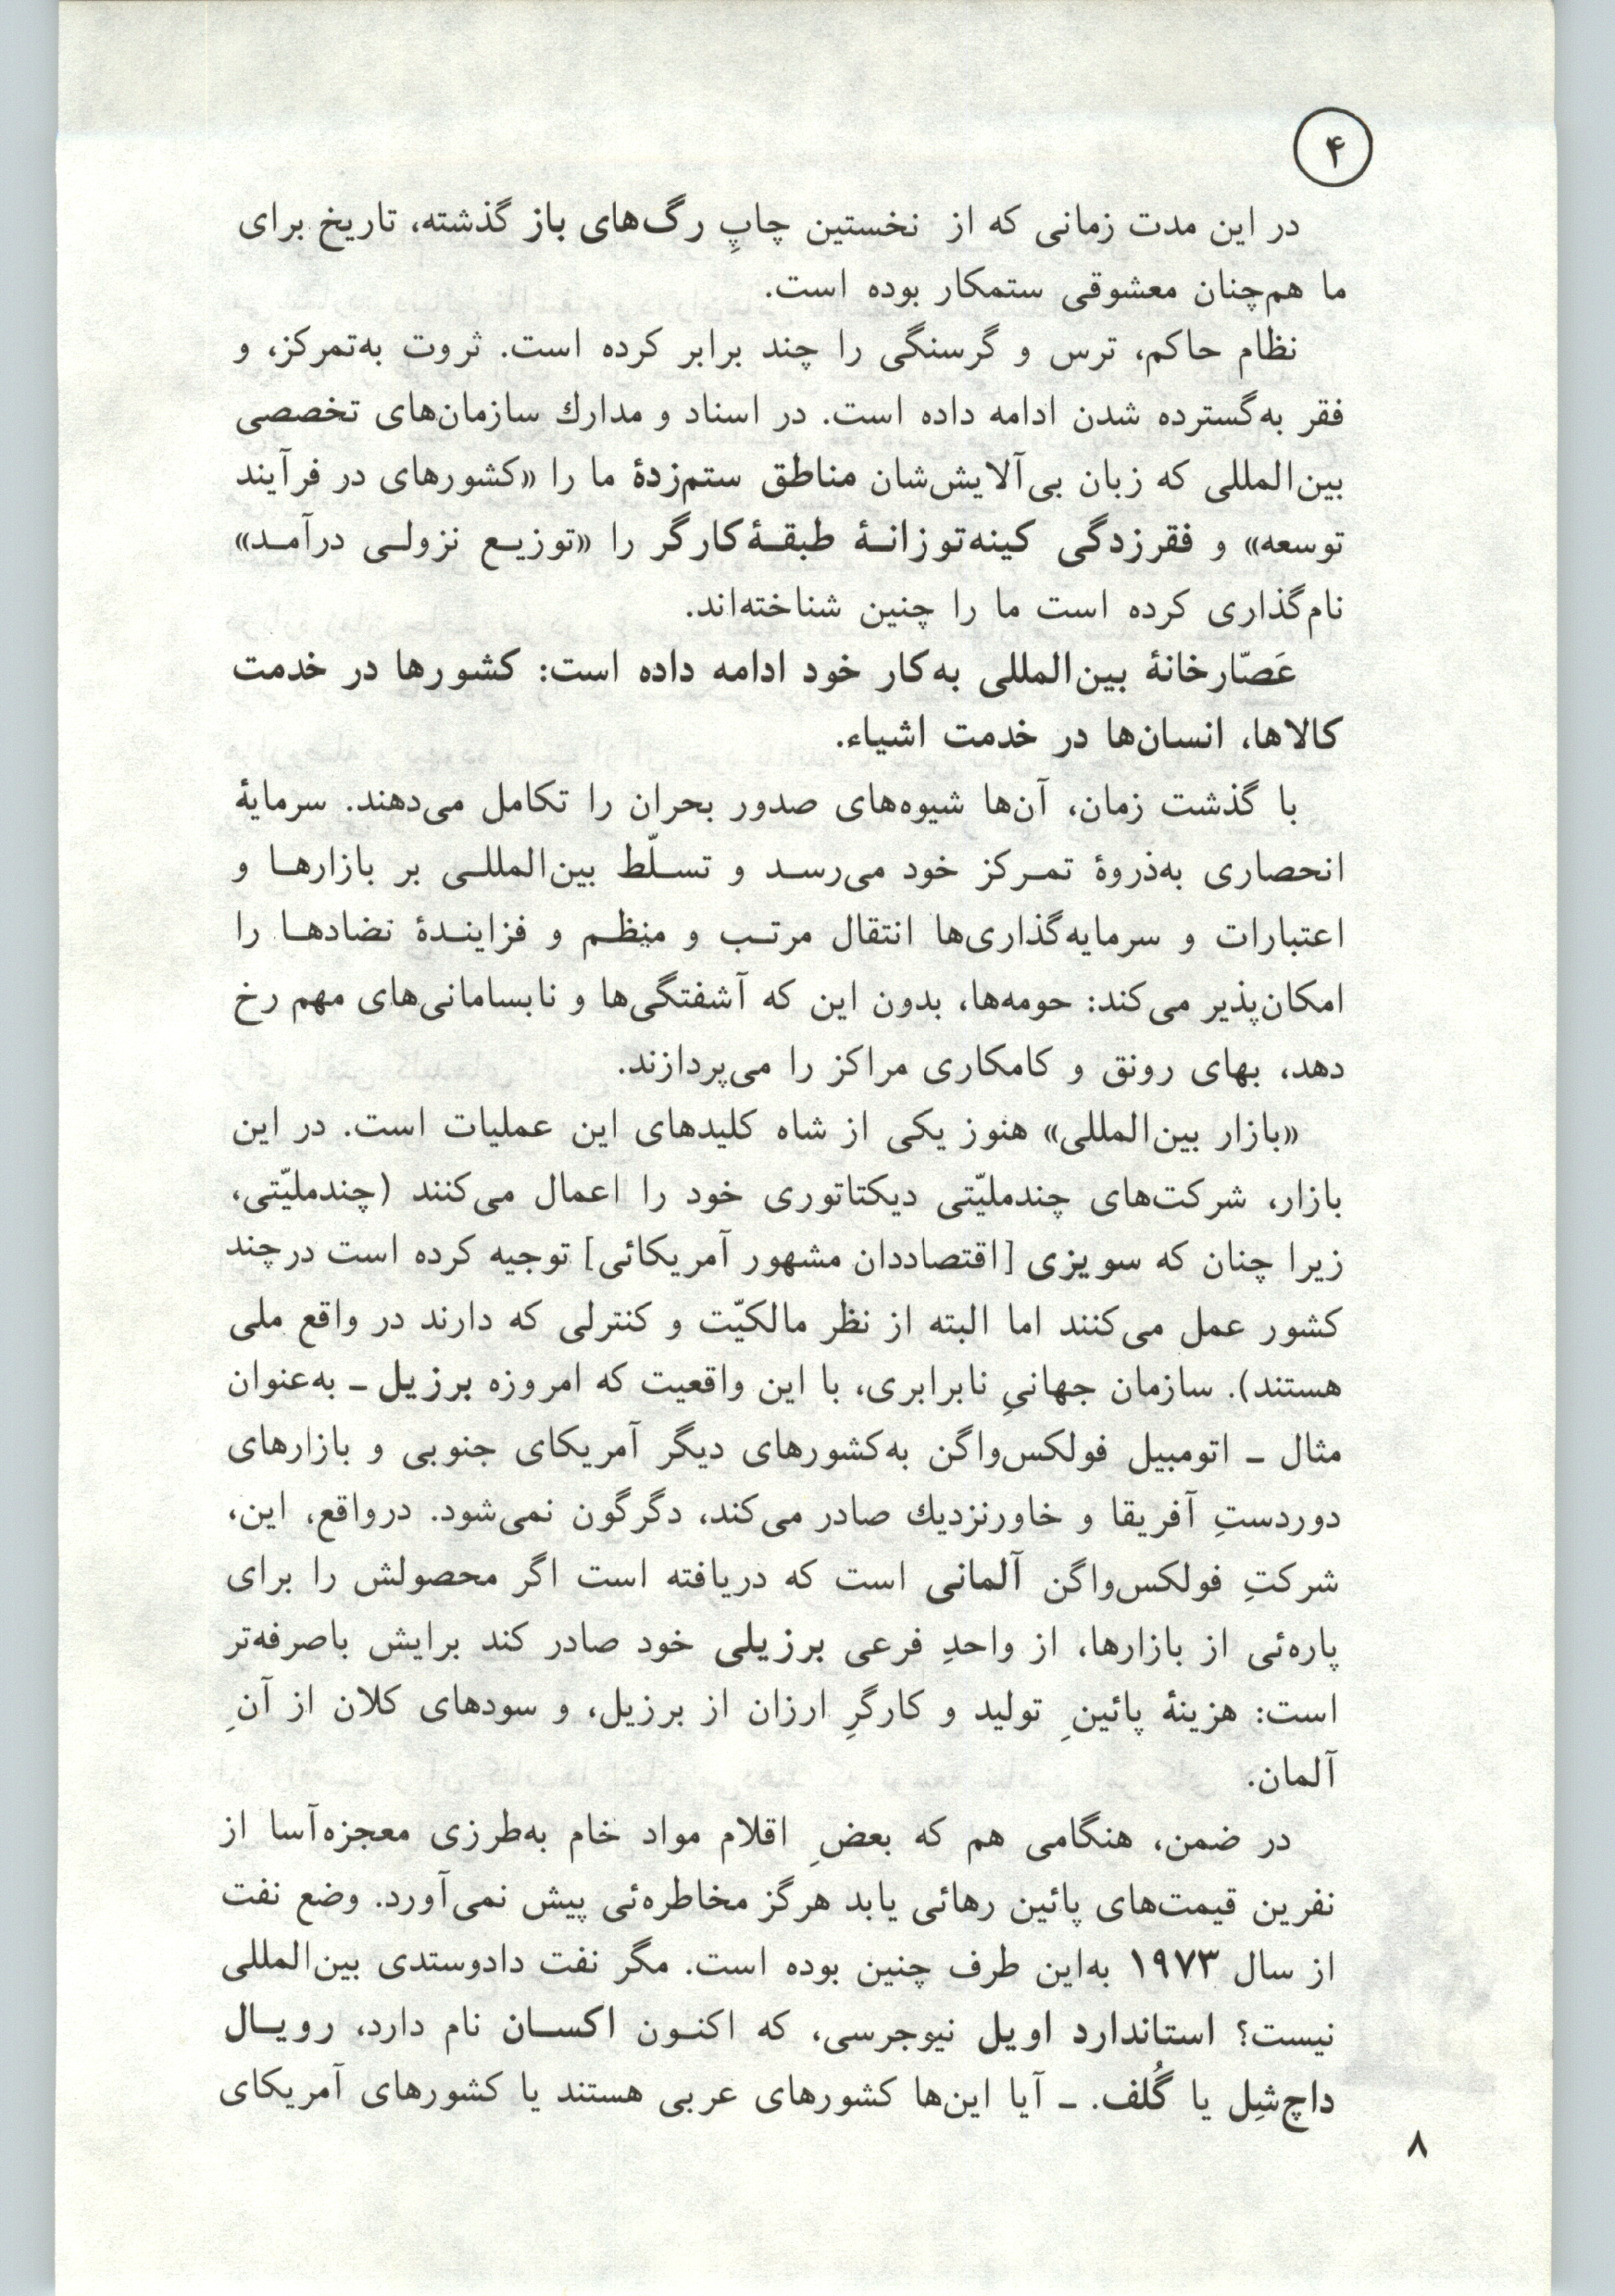 ۴
در این مدت زمانی که از نخستین چاپِ رگ‌های باز گذشته، تاریخ برای
ما هم‌چنان معشوقی ستمکار بوده است.
نظام حاکم، ترس و گرسنگی را چند برابر کرده است. ثروت به‌تمرکز، و
فقر به‌گسترده شدن ادامه داده است. در اسناد و مدارك سازمان‌های تخصصی
بین‌المللی که زبان بی‌آلایش‌شان مناطق ستم‌زدهٔ ما را «کشورهای در فرآیند
توسعه» و فقرزدگی کینه‌توزانـهٔ طبقـهٔ کارگر را «توزیـع نزولـی درآمـد»
نام‌گذاری کرده است ما را چنین شناخته‌اند.
عَصّارخانهٔ بین‌المللی به‌کار خود ادامه داده است: کشورها در خدمت
کالاها، انسان‌ها در خدمت اشیاء.
با گذشت زمان، آن‌ها شیوه‌های صدور بحران را تکامل می‌دهند. سرمایهٔ
انحصاری به‌ذروهٔ تمـرکز خود می‌رسـد و تسـلّط بین‌المللـی بر بازارهـا و
اعتبارات و سرمایه‌گذاری‌ها انتقال مرتـب و منظـم و فزاینـدهٔ تضادهـا را
امکان‌پذیر می‌کند: حومه‌ها، بدون این که آشفتگی‌ها و نابسامانی‌های مهم رخ
دهد، بهای رونق و کامکاری مراکز را می‌پردازند.
«بازار بین‌المللی» هنوز یکی از شاه کلیدهای این عملیات است. در این
بازار، شرکت‌های چندملیّتی دیکتاتوری خود را اعمال می‌کنند (چندملیّتی،
زیرا چنان که سویزی [اقتصاددان مشهور آمریکائی] توجیه کرده است درچند
کشور عمل می‌کنند اما البته از نظر مالکیّت و کنترلی که دارند در واقع ملی
هستند). سازمان جهانیِ نابرابری، با این واقعیت که امروزه برزیل ـ به‌عنوان
مثال ـ اتومبیل فولکس‌واگن به‌کشورهای دیگر آمریکای جنوبی و بازارهای
دوردستِ آفریقا و خاورنزدیك صادر می‌کند، دگرگون نمی‌شود. درواقع، این،
شرکتِ فولکس‌واگن آلمانی است که دریافته است اگر محصولش را برای
پاره‌ئی از بازارها، از واحدِ فرعی برزیلی خود صادر کند برایش باصرفه‌تر
است: هزینهٔ پائینِ تولید و کارگرِ ارزان از برزیل، و سودهای کلان از آنِ
آلمان.
در ضمن، هنگامی هم که بعضِ اقلام مواد خام به‌طرزی معجزه‌آسا از
نفرین قیمت‌های پائین رهائی یابد هرگز مخاطره‌ئی پیش نمی‌آورد. وضع نفت
از سال ۱۹۷۳ به‌این طرف چنین بوده است. مگر نفت دادوستدی بین‌المللی
نیست؟ استاندارد اویل نیوجرسی، که اکنـون اکسـان نام دارد، رویـال
داچ‌شِل یا گُلف. ـ آیا این‌ها کشورهای عربی هستند یا کشورهای آمریکای
۸